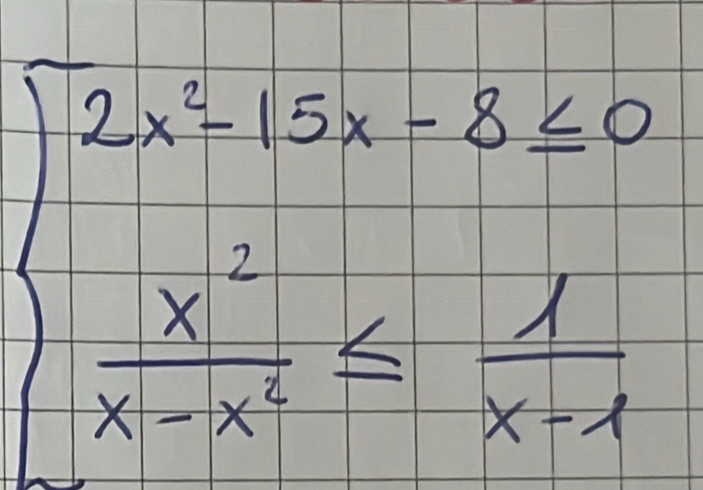 2x² - 15x - 8 ≤ 0
x²/(x - x²) ≤ 1/(x - 1)